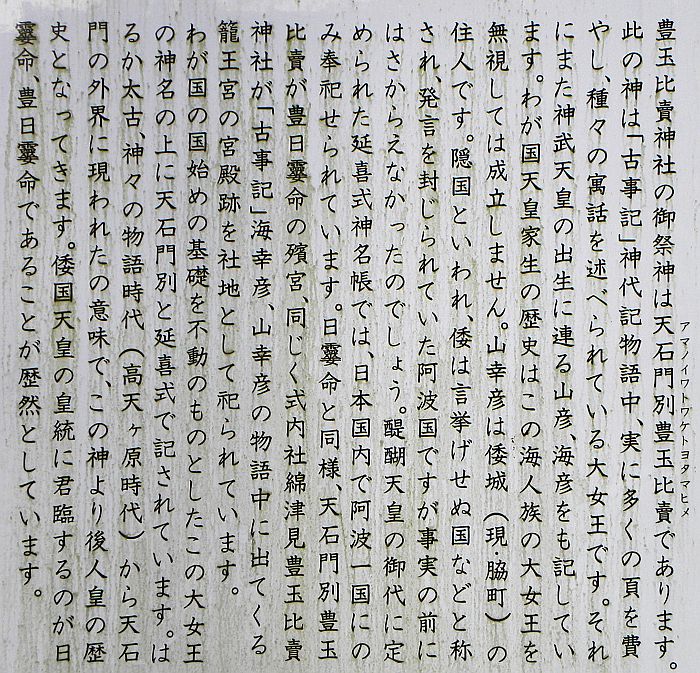 豊玉比賣神社の御祭神は天石門別豊玉比賣であります。
アマノイワトワケトヨタマヒメ
此の神は「古事記」神代記物語中、実に多くの頁を費
やし、種々の寓話を述べられている大女王です。それ
にまた神武天皇の出生に連る山彦、海彦をも記してい
ます。わが国天皇家生の歴史はこの海人族の大女王を
無視しては成立しません。山幸彦は倭城（現・脇町）の
住人です。隠国といわれ、倭は言挙げせぬ国などと称
され、発言を封じられていた阿波国ですが事実の前に
はさからえなかったのでしょう。醍醐天皇の御代に定
められた延喜式神名帳では、日本国内で阿波一国にの
み奉祀せられています。日霎命と同様、天石門別豊玉
比賣が豊日霎命の殯宮、同じく式内社綿津見豊玉比賣
神社が「古事記」海幸彦、山幸彦の物語中に出てくる
龍王宮の宮殿跡を社地として祀られています。
わが国の国始めの基礎を不動のものとしたこの大女王
の神名の上に天石門別と延喜式で記されています。は
るか太古、神々の物語時代（高天ヶ原時代）から天石
門の外界に現われたの意味で、この神より後人皇の歴
史となってきます。倭国天皇の皇統に君臨するのが日
霎命、豊日霎命であることが歴然としています。